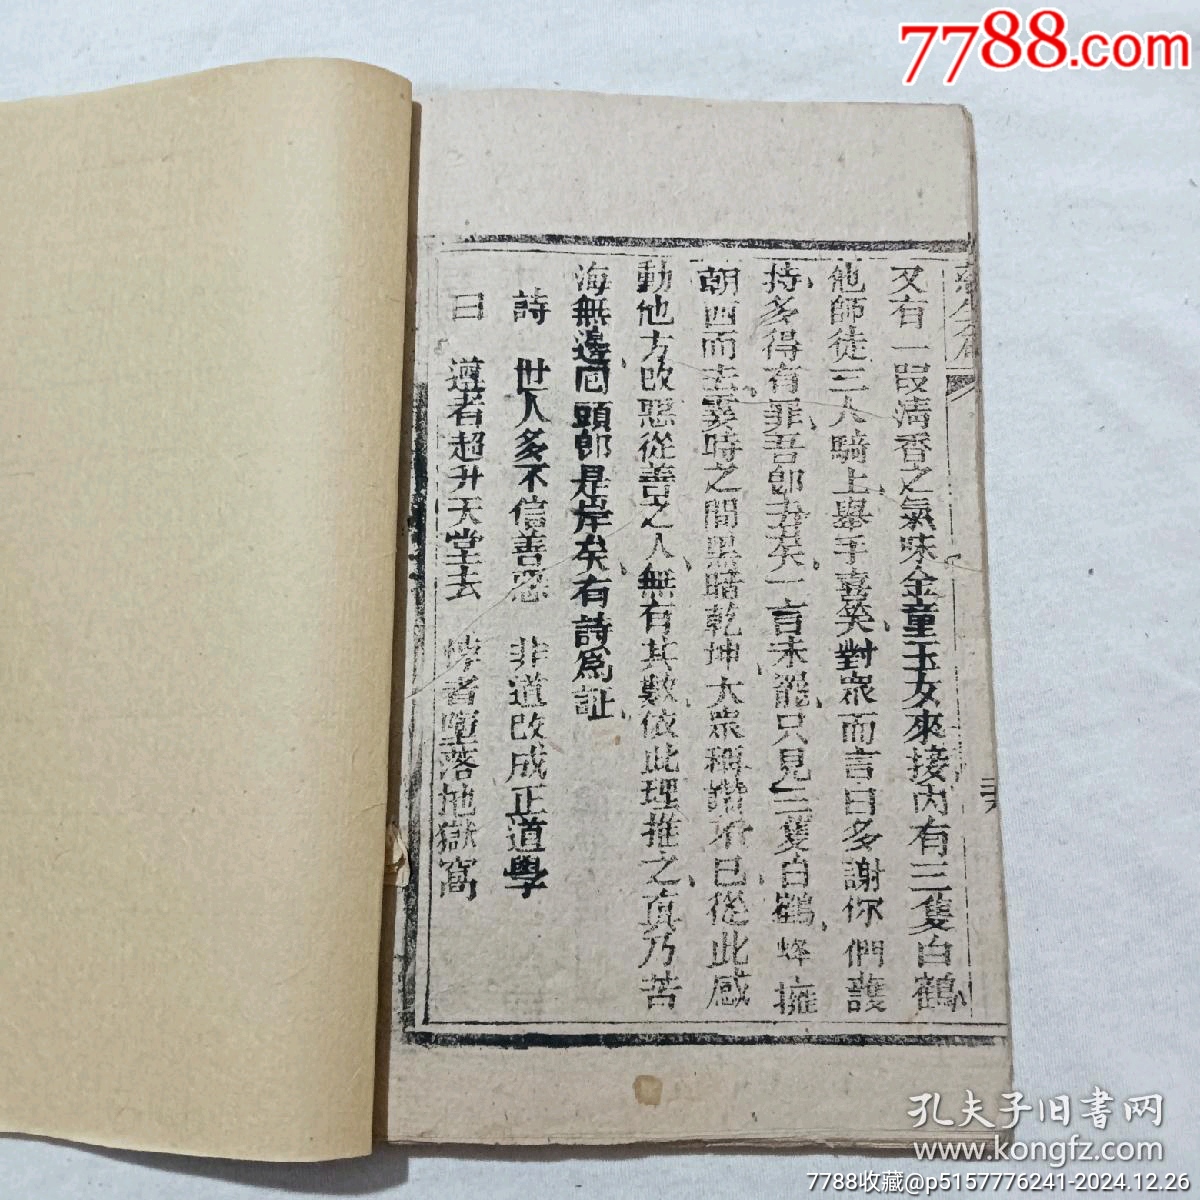 7788.com
又有一段清香之氣味金童玉女來接內有三隻白鶴
他師徒三人騎上舉手喜笑對眾而言曰多謝你們護
持多得有罪吾即去矣一言未罷只見三隻白鶴蜂擁
朝西而去霎時之間黑暗乾坤大眾稱讚不已從此感
動他方改惡從善之人無有其數依此理推之真乃苦
海無邊回頭即是岸矣有詩為証
詩 世人多不信善惡 非道改成正道學
曰 遵者超升天堂去 悖者墮落地獄窩
孔夫子旧書网
www.kongfz.com
7788收藏@p5157776241-2024.12.26